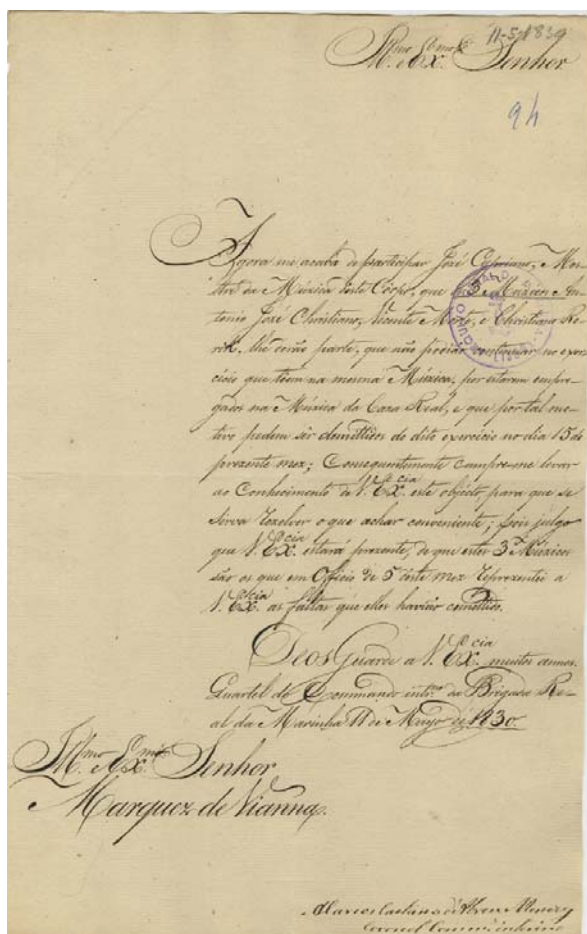 11-5-1830
Ill.mo e Ex.mo Senhor
94
Agora me acaba de participar José Cypriano, Mes-
tre da Múzica deste Corpo, que os 3 Múzicos An-
tonio José Christiano, Vicente e Christiano
lhe derão parte, que não podião continuar no exer-
cicio que tem na mesma Múzica, por estarem empre-
gados na Múzica da Caza Real, e que por tal mo-
tivo pedem ser demittidos do dito exercicio no dia 15 do
prezente mez; Consequentemente cumpre-me levar
ao Conhecimento de V. Ex.cia este objecto, para que se
sirva rezolver o que achar conveniente; pois julgo
que V. Ex.cia estará prezente, de que estes 3 Múzicos
são os que em Officio de 5 deste mez reprezentei a
V. Ex.cia as faltas que elles havião comettido.
Deos Guarde a V. Ex.cia muitos annos.
Quartel do Commando int.no da Brigada Re-
al da Marinha 11 de Mayo de 1830.
Ill.mo e Ex.mo Senhor
Marquez de Vianna.
Marcos Caetano d'Abreu e Menezes
Coronel Comm.e interino